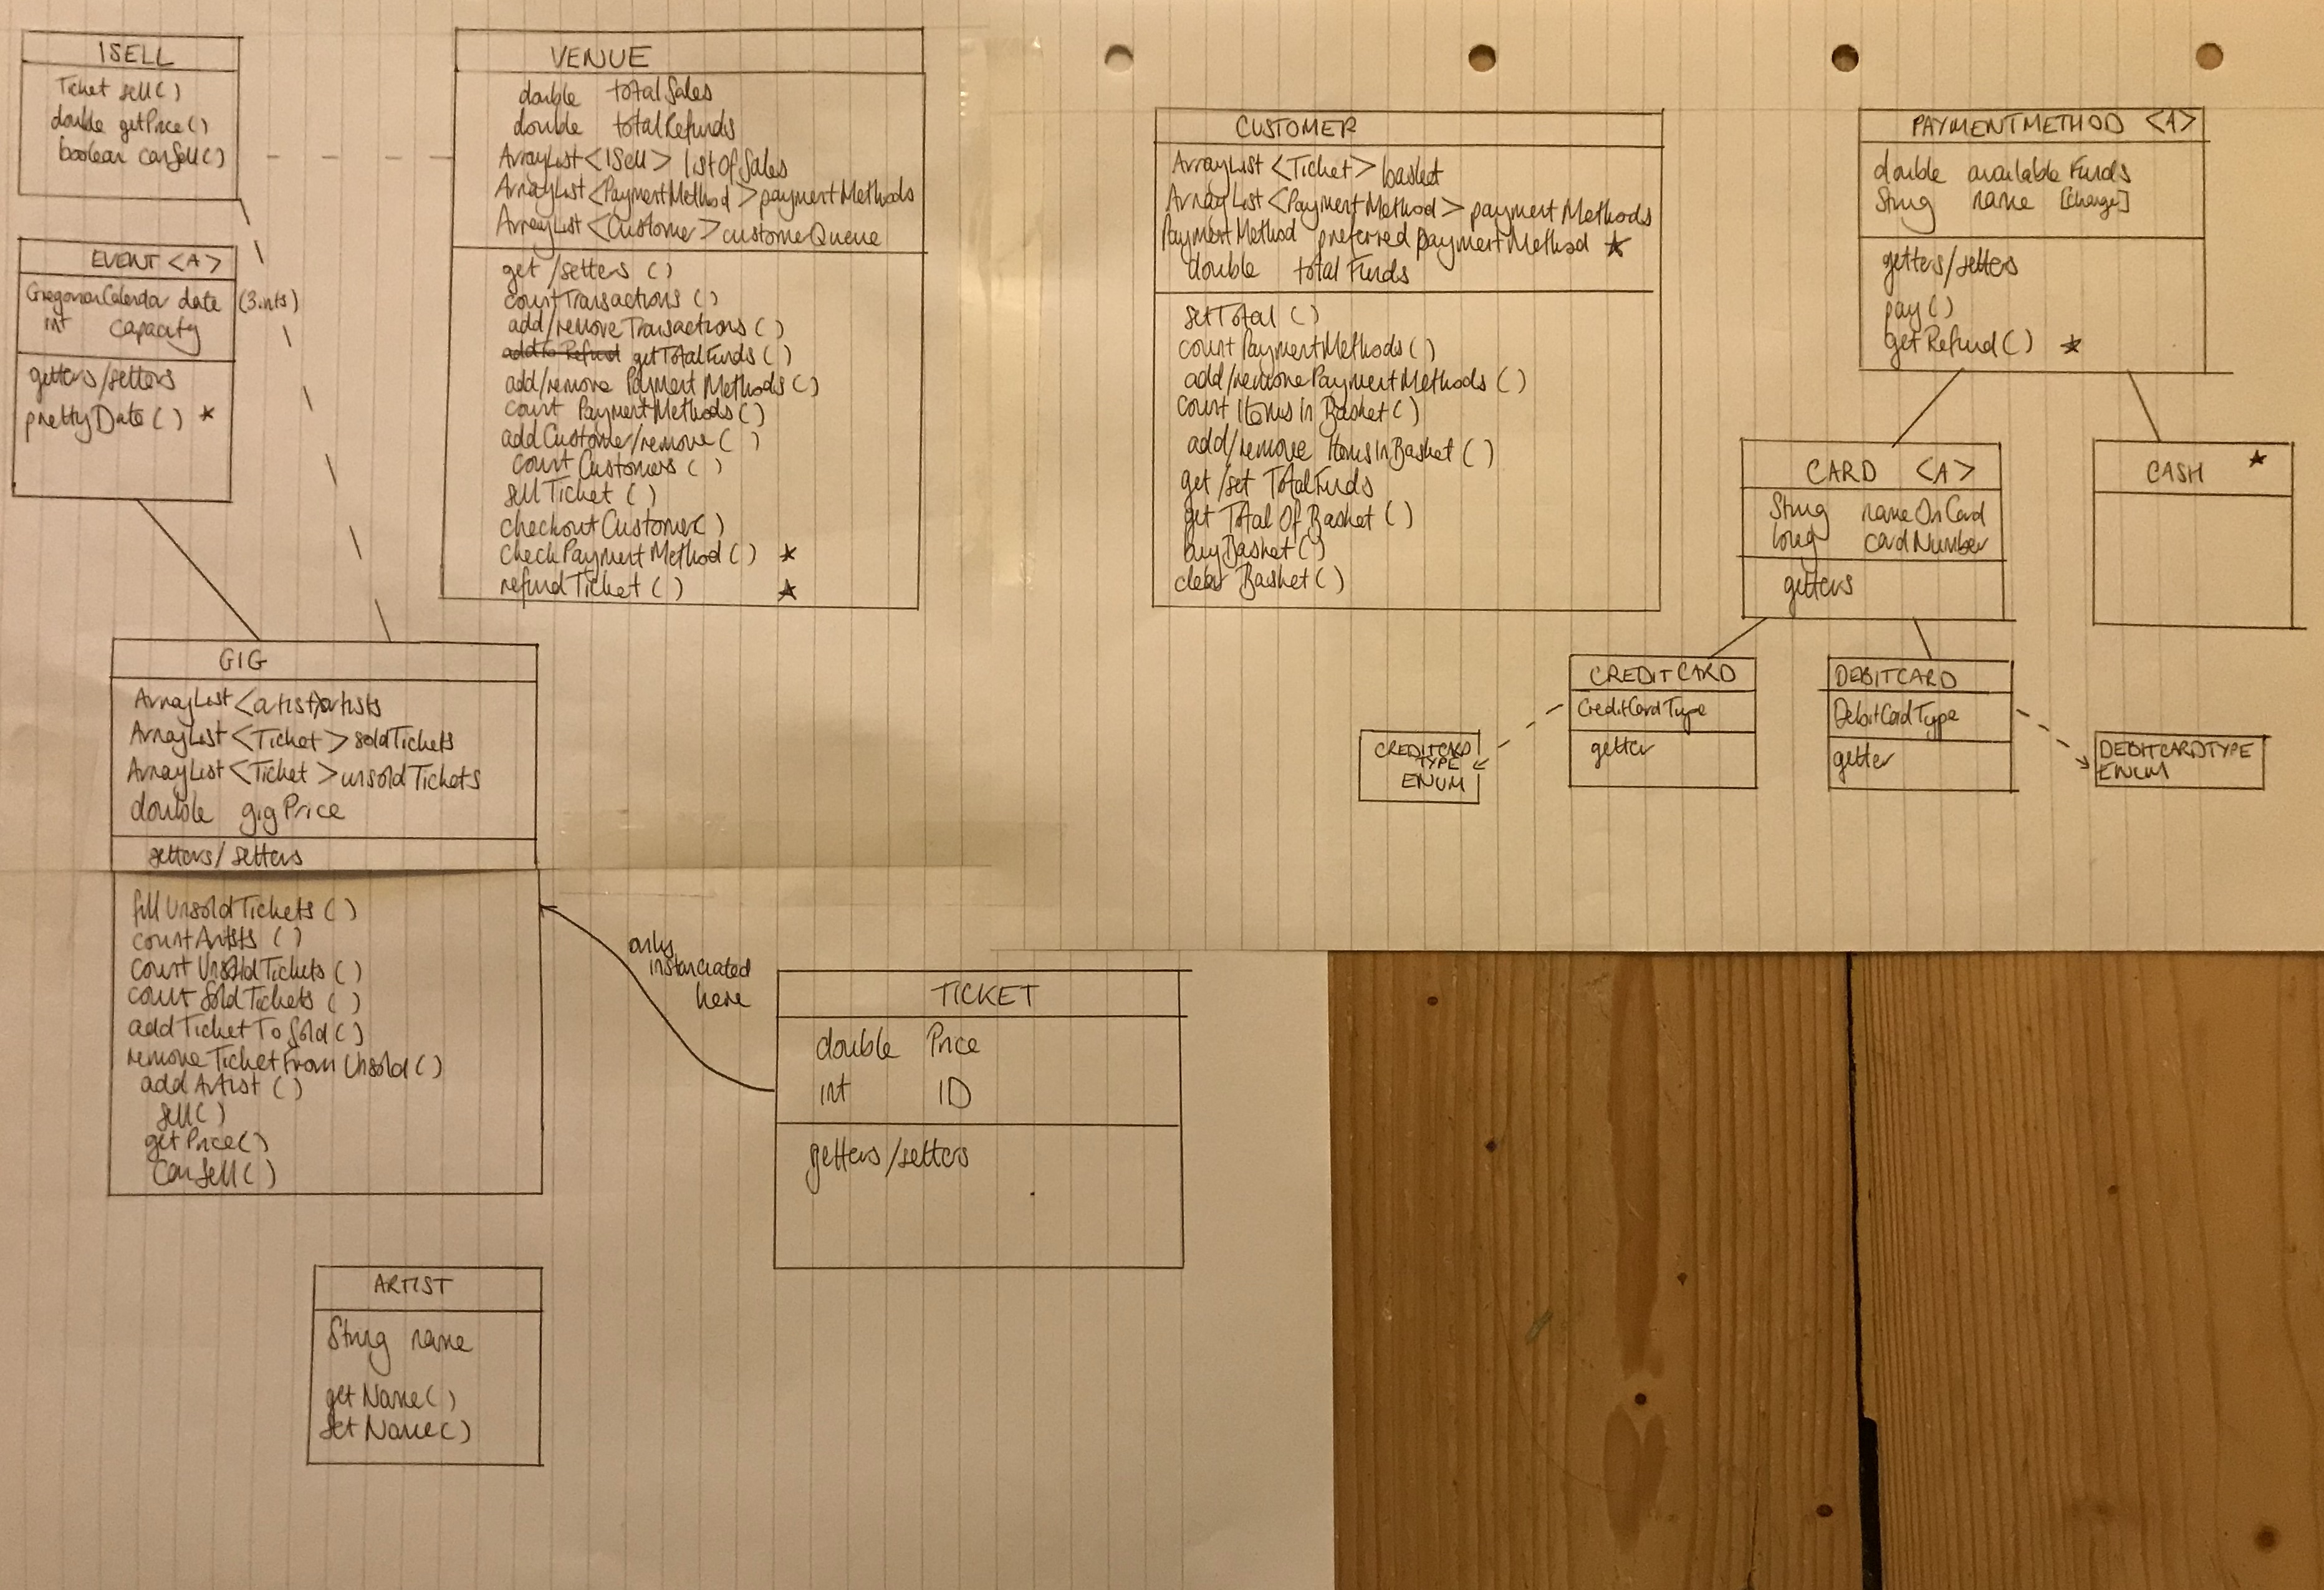 ISELL
Ticket sell()
double getPrice()
boolean canSell()
EVENT <A>
GregorianCalendar date (3.nts)
int capacity
getters/setters
prettyDate() *
VENUE
double totalSales
double totalRefunds
ArrayList<ISell> listOfSales
ArrayList<PaymentMethod> paymentMethods
ArrayList<Customer> customerQueue
get/setters ()
countTransactions ()
add/removeTransactions()
addToRefund getTotalFunds()
add/remove Payment Methods()
count PaymentMethods()
addCustomer/remove()
count Customers ()
sellTicket ()
checkoutCustomer()
checkPayment Method() *
refundTicket() *
GIG
ArrayList<artist>artists
ArrayList<Ticket> soldTickets
ArrayList<Ticket> unsoldTickets
double gigPrice
getters/setters
fillUnsoldTickets()
countArtists ()
count UnsoldTickets()
count SoldTickets ()
addTicketToSold()
removeTicketFromUnsold()
addArtist ()
sell()
getPrice()
canSell()
only
instanciated
here
TICKET
double Price
int ID
getters/setters
ARTIST
String name
getName()
setName()
CUSTOMER
ArrayList <Ticket> basket
ArrayList<PaymentMethod> paymentMethods
PaymentMethod preferred paymentMethod *
double totalFunds
setTotal ()
count PaymentMethods()
add/removePaymentMethods()
count Items In Basket()
add/remove ItemsInBasket()
get/set TotalFunds
get Total Of Basket()
buyBasket()
clear Basket()
PAYMENTMETHOD <A>
double availableFunds
String name [change]
getters/setters
pay()
getRefund() *
CARD <A>
String nameOnCard
long cardNumber
getters
CASH *
CREDITCARD
CreditCardType
getter
DEBITCARD
DebitCardType
getter
CREDITCARD
TYPE
ENUM
DEBITCARDTYPE
ENUM